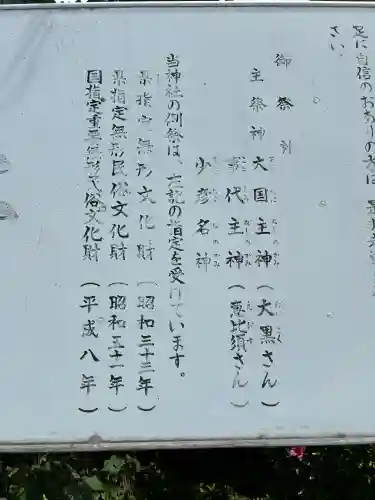 足に自信のおありの方は、是非
さい。
御祭神
主祭神 大国主神(大黒さん)
事代主神(恵比須さん)
少彦名神
当神社の例祭は、左記の指定を受けています。
県指定無形文化財(昭和三十三年)
県指定無形民俗文化財(昭和五十一年)
国指定重要無形民俗文化財(平成八年)